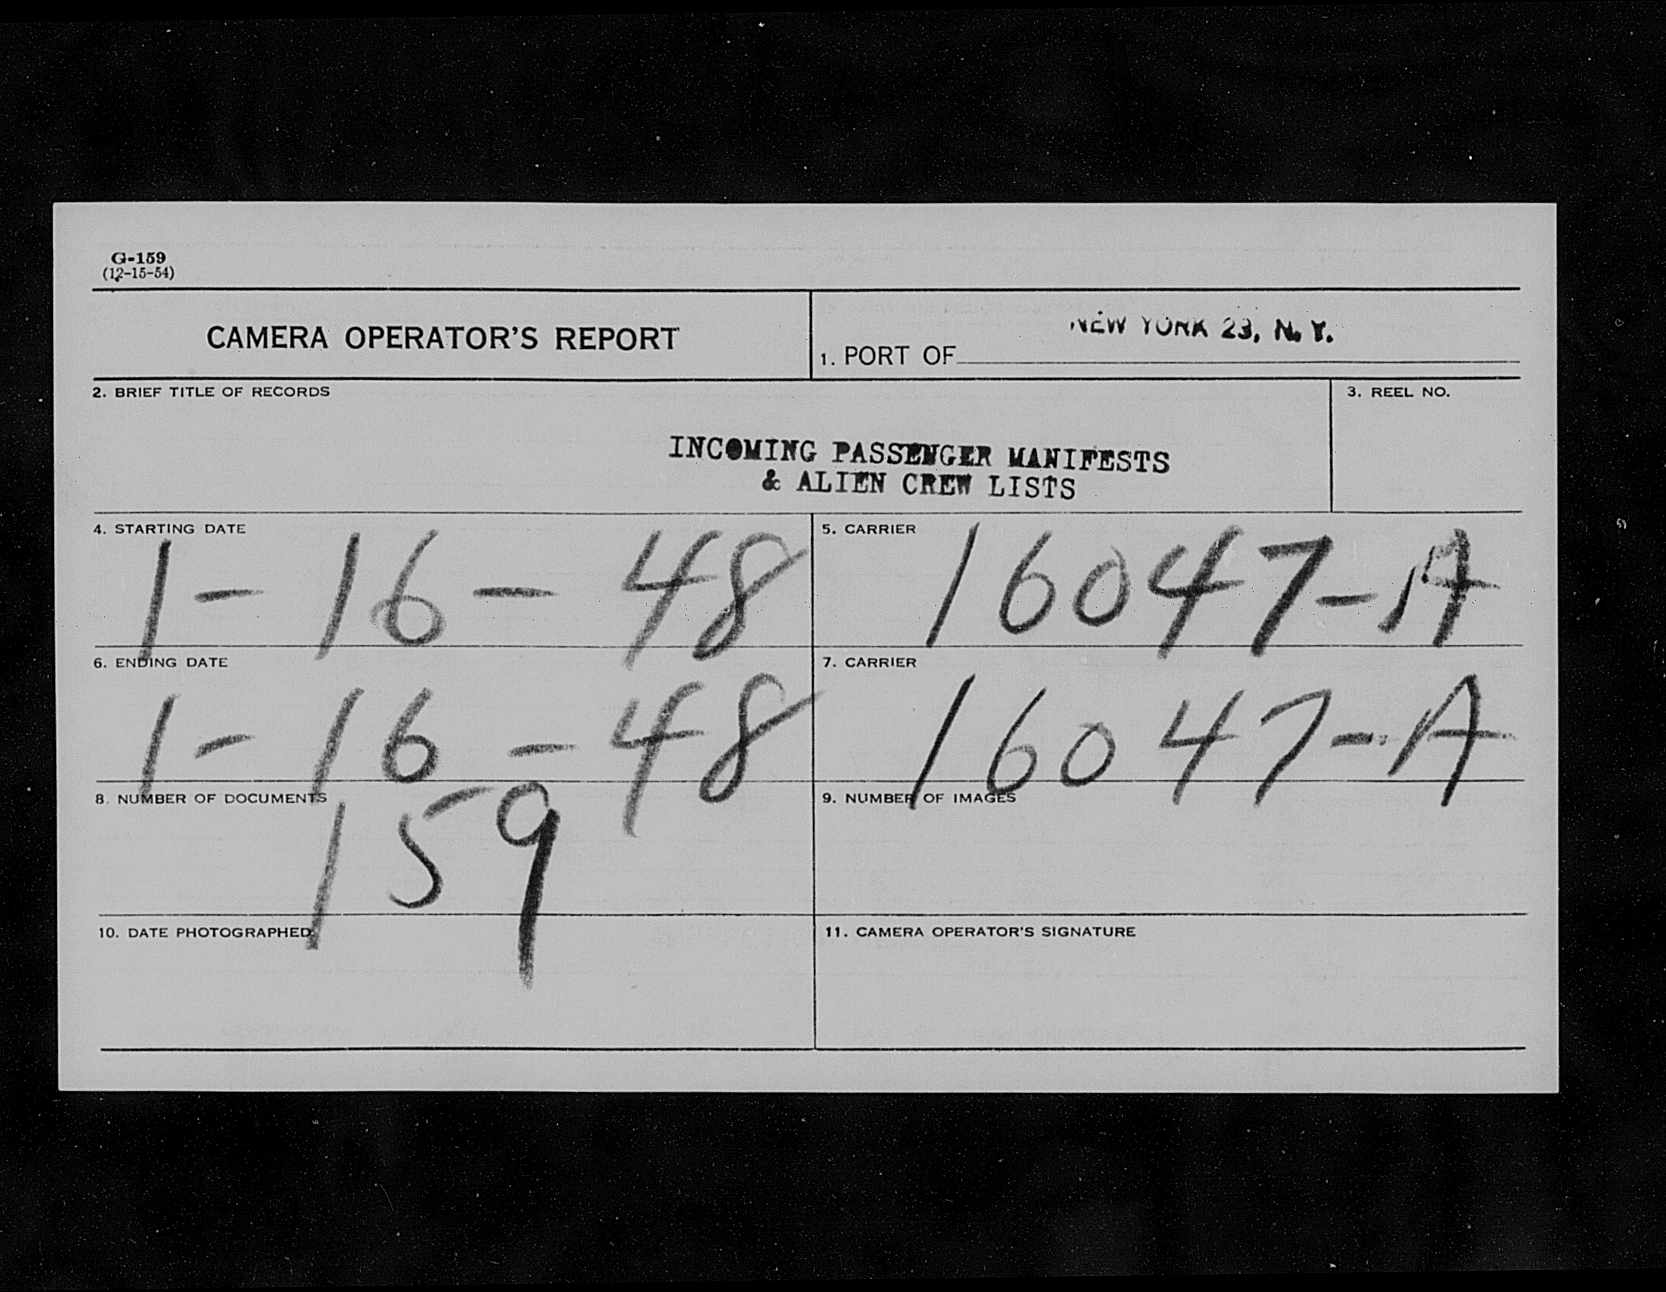 G-159
(12-15-54)
CAMERA OPERATOR'S REPORT
1. PORT OF NEW YORK 23, N. Y.
2. BRIEF TITLE OF RECORDS
3. REEL NO.
INCOMING PASSENGER MANIFESTS
& ALIEN CREW LISTS
4. STARTING DATE
1-16-48
5. CARRIER
16047-A
6. ENDING DATE
1-16-48
7. CARRIER
16047-A
8. NUMBER OF DOCUMENTS
159
9. NUMBER OF IMAGES
10. DATE PHOTOGRAPHED
11. CAMERA OPERATOR'S SIGNATURE